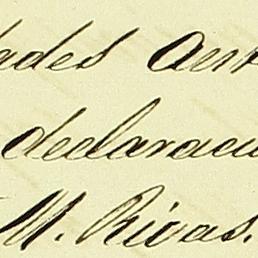 dades
declaraci
M. Rivas.